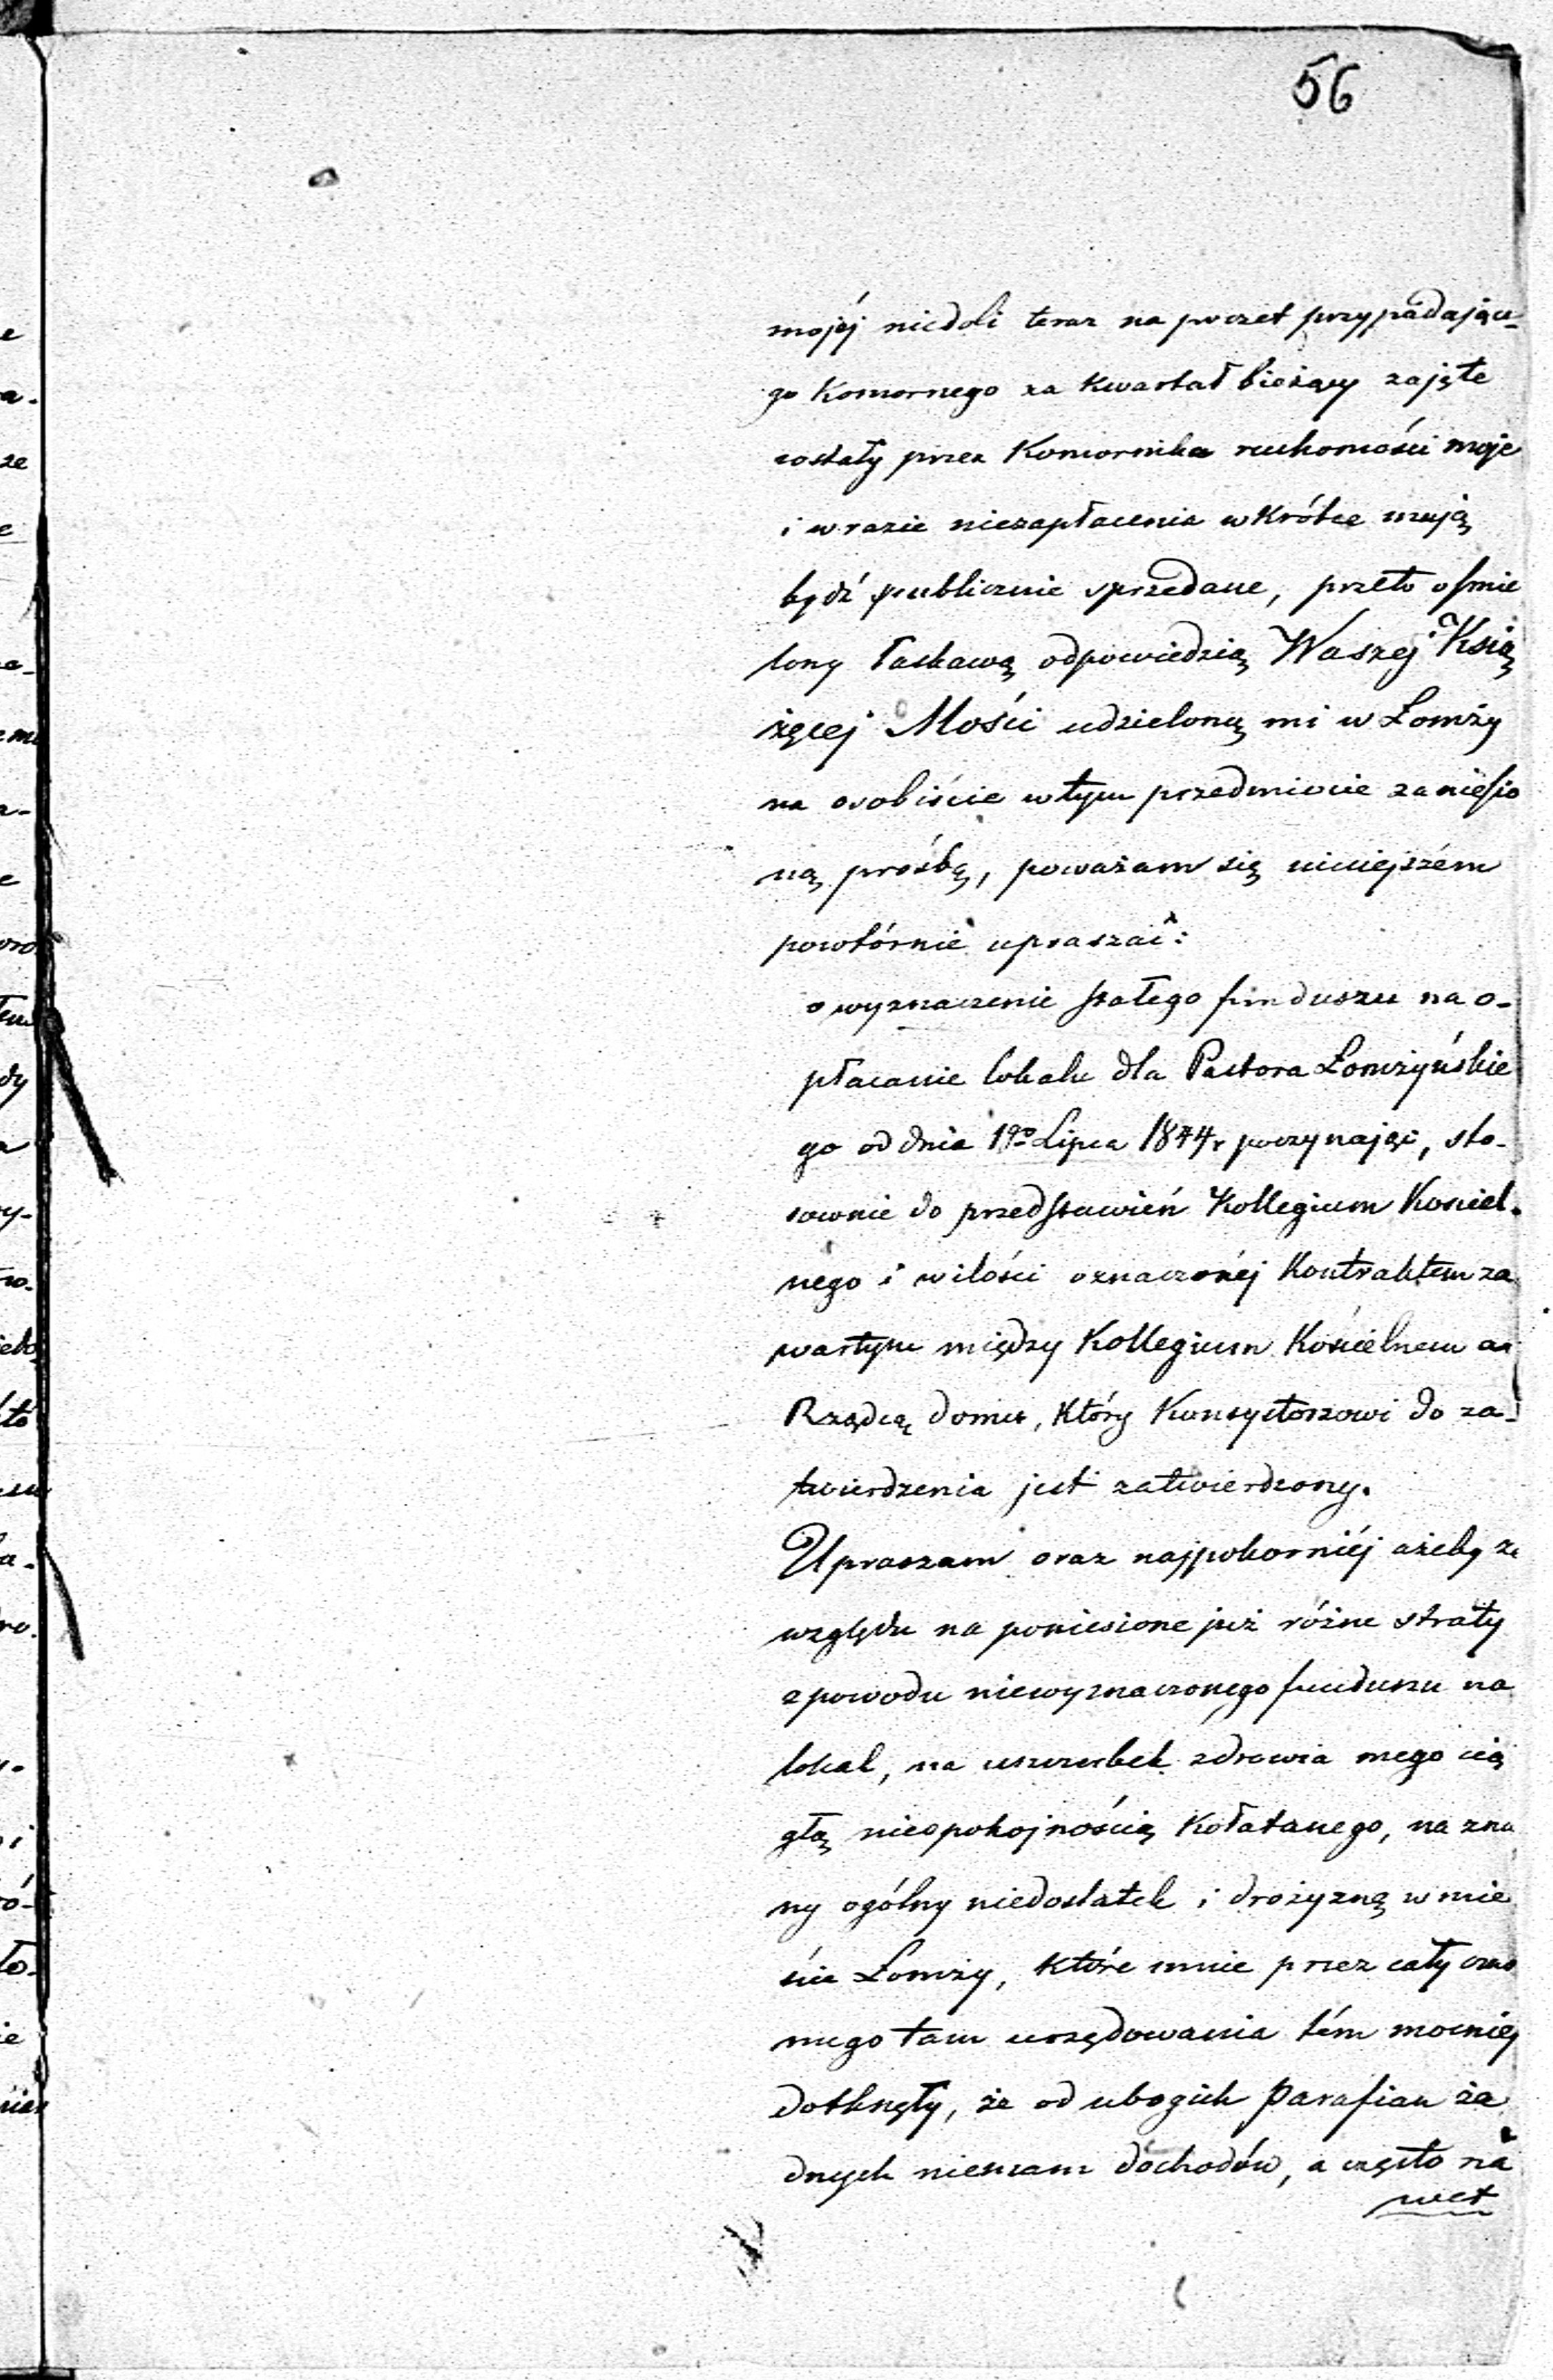 56
mojéj niedoli teraz na poczet przypadające-
go Komornego za Kwartał bieżący zajęte
zostały przez Komornika ruchomości moje
i w razie niezapłacenia wkrótce mają
bydź publicznie sprzedane, przeto ośmie
lony łaskawą odpowiedzią Waszej Ksią
żęcej Mości udzieloną mi w Łomży
na osobiście w tym przedmiocie zaniesio
ną prośbę, poważam się niniejszém
powtórnie upraszać:
o wyznaczenie stałego funduszu na o-
płacanie lokalu dla Pastora Łomżyńskie
go od dnia 1go Lipca 1844 r poczynając, sto-
sownie do przedstawień Kollegium Kościel-
nego i w ilości oznaczonéj Kontraktem za
wartym między Kollegium Kościelnem a
Rządcą domu, Który Konsystorzowi do za-
twierdzenia jest zatwierdzony.
Upraszam oraz najpokorniéj ażeby ze
względu na poniesione już różne straty
z powodu niewyznaczonego funduszu na
lokal, na uszczerbek zdrowia mego cią
głą niespokojnością Kołatanego, na zna
ny ogólny niedostatek i drożyznę w mie
ście Łomży, Które mnie przez cały czas
mego tam urzędowania tém mocniej
dotknęły, że od ubogich Parafian ża
dnych niemam dochodów, a często na
wet